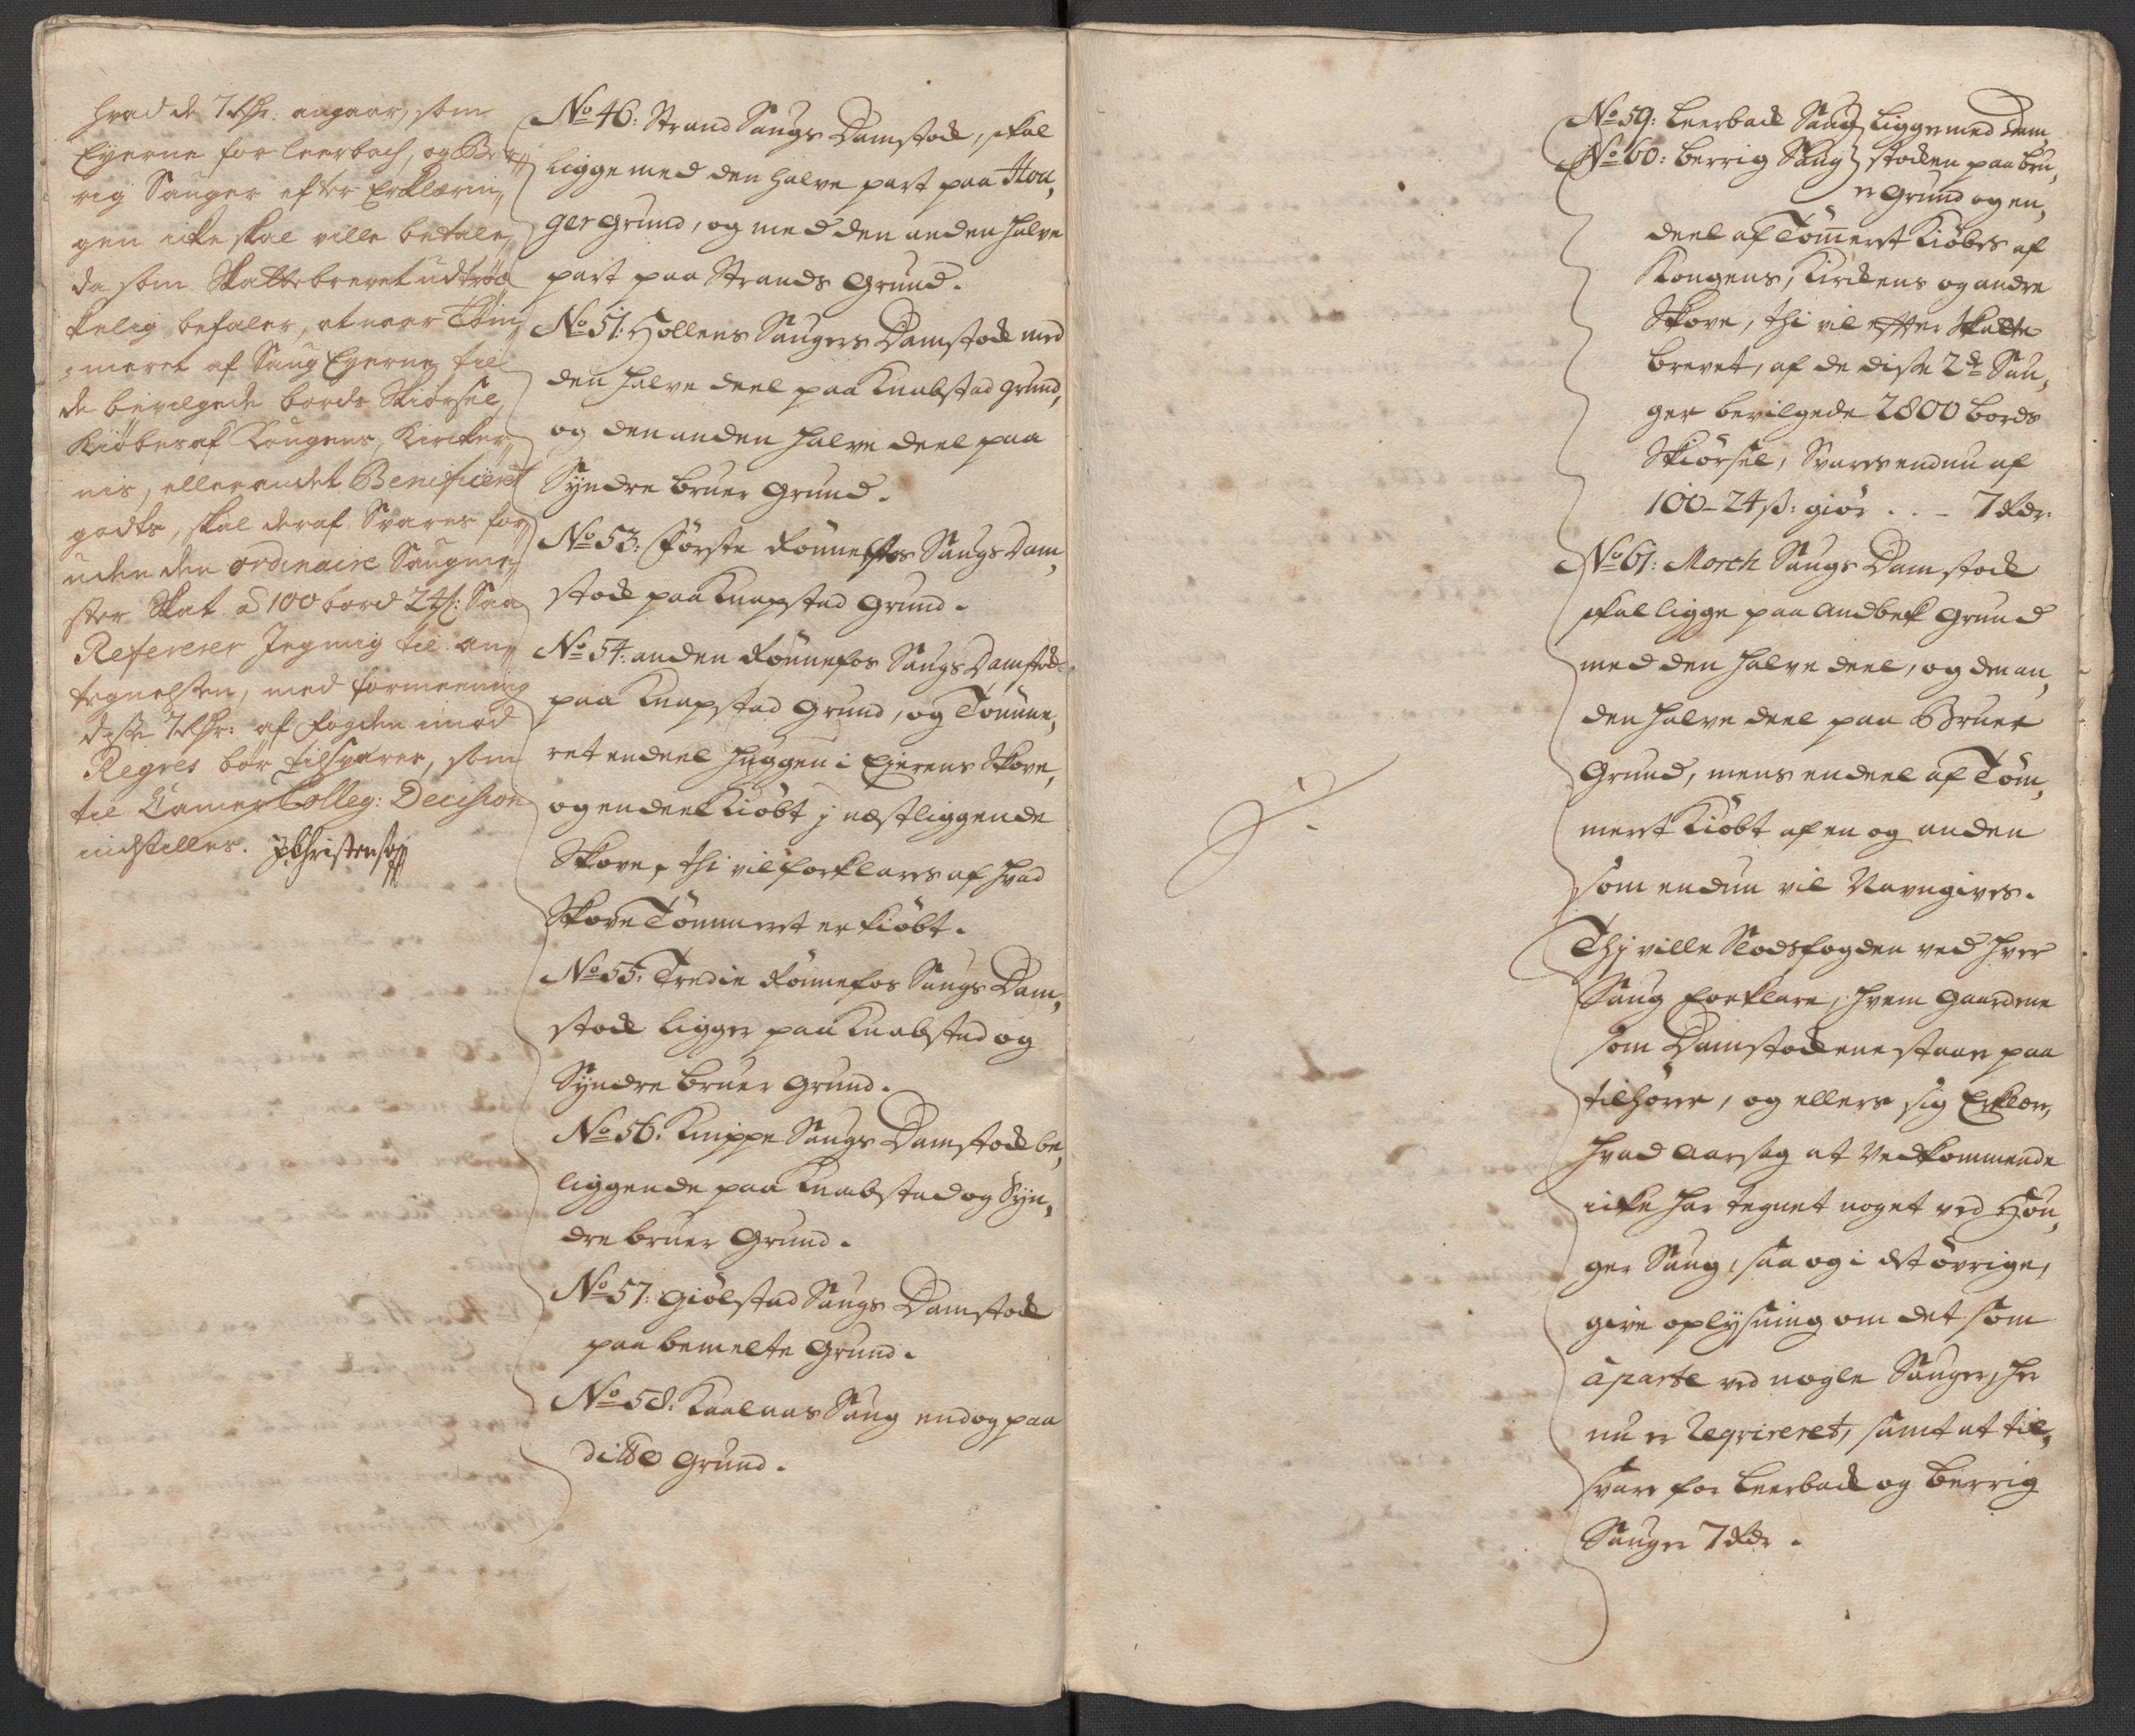 hvad de 7 Rdr: angaar, som
Eyerne for Leerbach, og Ber-
rig Sauger efter Erklærin-
gen icke skal ville betale,
da som Skattebrevet udtrøc-
kelig befaler, at naar Tøm-
meret af Saug Eyerne til
de bevilgede bords Skiørsel,
Kiøbes af Kongens, Kircker-
nis, eller andet Beneficeret
godts, skal deraf Svares for-
uden den ordinaire Saugme-
ster Skat à 100 bord 24 s: Saa
Refererer Jeg mig til an-
tegnelsen, med formeening
disse 7 Rdr: af fogden imod
Regres bør tilsvares, som
til Camer Colleg: Decision
indstilles. JChristensen
No 46: Strand Saugs Damstock, skal
ligge med den halve part paa Hou-
ger grund, og med den anden halve
part paa Strands Grund.
No 51: Hollens Saugers Damstock med
den halve deel paa Knabstad grund,
og den anden halve deel paa
Syndre bruer Grund.
No 53: Første Rønnefos Saugs Dam-
stock paa Knapstad Grund.
No 54: anden Rønnefos Saugs Damstock
paa Knapstad Grund, og Tømme-
ret endeel huggen i Ejerens Skove,
og endeel Kiøbt j nestliggende
Skove, thi vil forklares af hvad
Skove Tømmeret er kiøbt.
No 55: Tredie Rønnefos Saugs Dam-
stock ligger paa Knabstad og
Syndre bruer Grund.
No 56: Knippe Saugs Damstock be-
liggende paa Knabstad og Syn-
dre bruer Grund.
No 57: Giølstad Saugs Damstock
paa bemelte Grund.
No 58: Kaalaas Saug endog paa
ditto Grund.
No 59: Leerback Saug ligge med Dam-
No 60: Berrig Saug stocken paa bru-
er Grund og en-
deel af Tømmeret Kiøbes af
Kongens, Kirckens og andre
Skove, thi vil efter Skatte
brevet, af de disse 2de Sau-
ger bevilgede 2800 bords
Skiørsel, Svares endnu af
100 - 24 s: giør . . - 7 Rdr.
No 61: Morch Saugs Damstock
skal ligge paa Andbek Grund
med den halve deel, og den an-
den halve deel paa Bruer
Grund, mens endeel af Tøm-
meret Kiøbt af en og anden
som endnu vil Navngives.
Thj ville Slodsfogden ved hver
Saug forklare, hvem gaardene
som Damstockene staar paa
tilhører, og ellers sig Erklære,
hvad Aarsag at Vedkommende
icke har tegnet noget ved Hou-
ger Saug, saa og i det øvrige,
give oplysning om det som
àparte ved nogle Sauger, her
nu er Reqvireret, samt at til-
svare for Leerback og Berrig
Sauger 7 Rdr.